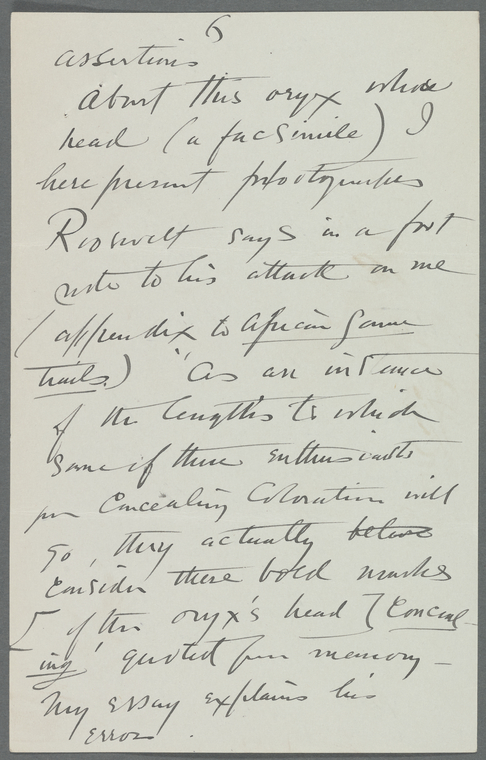 6
assertions
About this oryx whose
head (a facsimile) I
here present photographs
Roosevelt says in a foot
note to his attack on me
(appendix to African Game
trails.) "As an instance
of the lengths to which
some of these enthusiasts
for Concealing Coloration will
go, they actually believe
consider these bold marks
of the oryx's head [Conceal-
ing' quoted from memory —
My essay explains his
error.